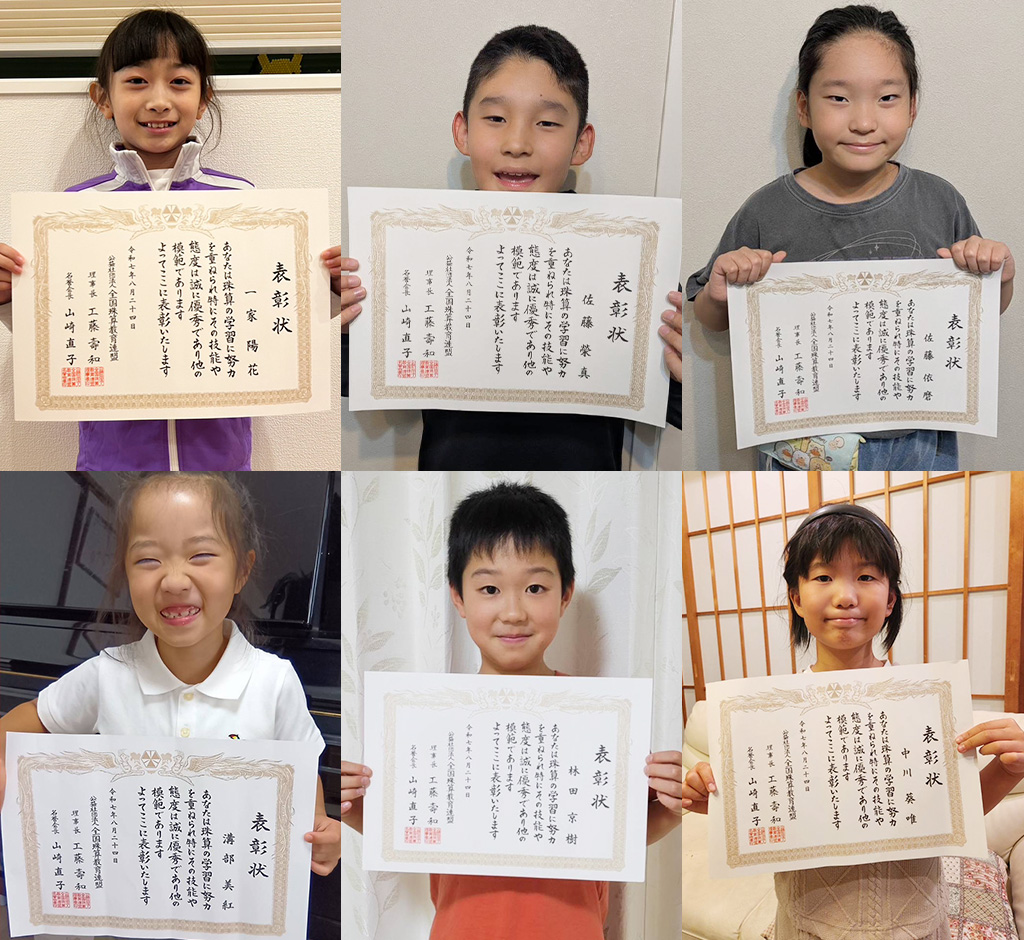 表彰状
一家陽花
あなたは珠算の学習に努力
を重ねられ特にその技能や
態度は誠に優秀であり他の
模範であります
よってここに表彰いたします
令和七年八月二十四日
公益社団法人全国珠算教育連盟
理事長 工藤壽和
名誉会長 山崎直子
表彰状
佐藤榮真
あなたは珠算の学習に努力
を重ねられ特にその技能や
態度は誠に優秀であり他の
模範であります
よってここに表彰いたします
令和七年八月二十四日
公益社団法人全国珠算教育連盟
理事長 工藤壽和
名誉会長 山崎直子
表彰状
佐藤依磨
あなたは珠算の学習に努力
を重ねられ特にその技能や
態度は誠に優秀であり他の
模範であります
よってここに表彰いたします
令和七年八月二十四日
公益社団法人全国珠算教育連盟
理事長 工藤壽和
名誉会長 山崎直子
表彰状
溝部美紅
あなたは珠算の学習に努力
を重ねられ特にその技能や
態度は誠に優秀であり他の
模範であります
よってここに表彰いたします
令和七年八月二十四日
公益社団法人全国珠算教育連盟
理事長 工藤壽和
名誉会長 山崎直子
表彰状
林田京樹
あなたは珠算の学習に努力
を重ねられ特にその技能や
態度は誠に優秀であり他の
模範であります
よってここに表彰いたします
令和七年八月二十四日
公益社団法人全国珠算教育連盟
理事長 工藤壽和
名誉会長 山崎直子
表彰状
中川葵唯
あなたは珠算の学習に努力
を重ねられ特にその技能や
態度は誠に優秀であり他の
模範であります
よってここに表彰いたします
令和七年八月二十四日
公益社団法人全国珠算教育連盟
理事長 工藤壽和
名誉会長 山崎直子